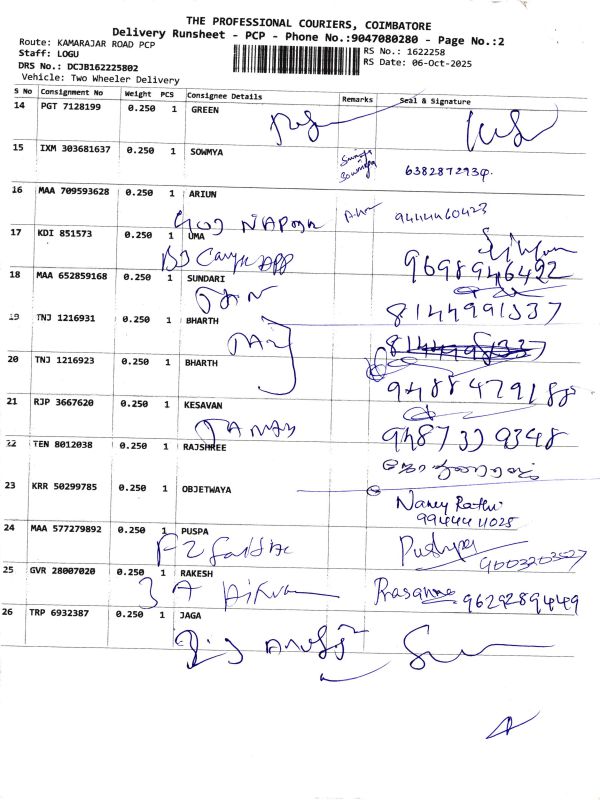 THE PROFESSIONAL COURIERS, COIMBATORE
Delivery Runsheet - PCP - Phone No.:9047080280 - Page No.:2
Route: KAMARAJAR ROAD PCP
Staff: LOGU
RS No.: 1622258
DRS No.: DCJB162225802
RS Date: 06-Oct-2025
Vehicle: Two Wheeler Delivery
S No Consignment No Weight PCS Consignee Details Remarks Seal & Signature
14 PGT 7128199 0.250 1 GREEN
15 IXM 303681637 0.250 1 SOWMYA 6382872934.
16 MAA 709593628 0.250 1 ARIUN 9444460423
17 KDI 851573 0.250 1 UMA
9698946492
18 MAA 652859168 0.250 1 SUNDARI
8144991337
19 TNJ 1216931 0.250 1 BHARTH
20 TNJ 1216923 0.250 1 BHARTH
9488479188
21 RJP 3667620 0.250 1 KESAVAN
9487339348
22 TEN 8012038 0.250 1 RAJSHREE
23 KRR 50299785 0.250 1 OBJETWAYA
Nancy Rathi
9944411025
24 MAA 577279892 0.250 1 PUSPA
Pushpa 9003203527
25 GVR 28007020 0.250 1 RAKESH
3 A Prasanna 9629289449
26 TRP 6932387 0.250 1 JAGA